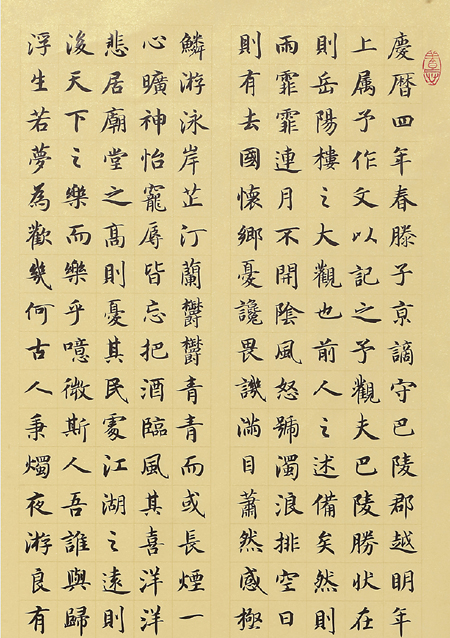 慶暦四年春滕子京謫守巴陵郡越明年
上属予作文以記之予觀夫巴陵勝狀在
則岳陽樓之大觀也前人之述備矣然則
雨霏霏連月不開陰風怒號濁浪排空日
則有去國懷鄉憂讒畏譏滿目蕭然感極
鱗游泳岸芷汀蘭鬱鬱青青而或長煙一
心曠神怡寵辱皆忘把酒臨風其喜洋洋
悲居廟堂之髙則憂其民處江湖之遠則
後天下之樂而樂乎噫微斯人吾誰與歸
浮生若夢為歡幾何古人秉燭夜游良有